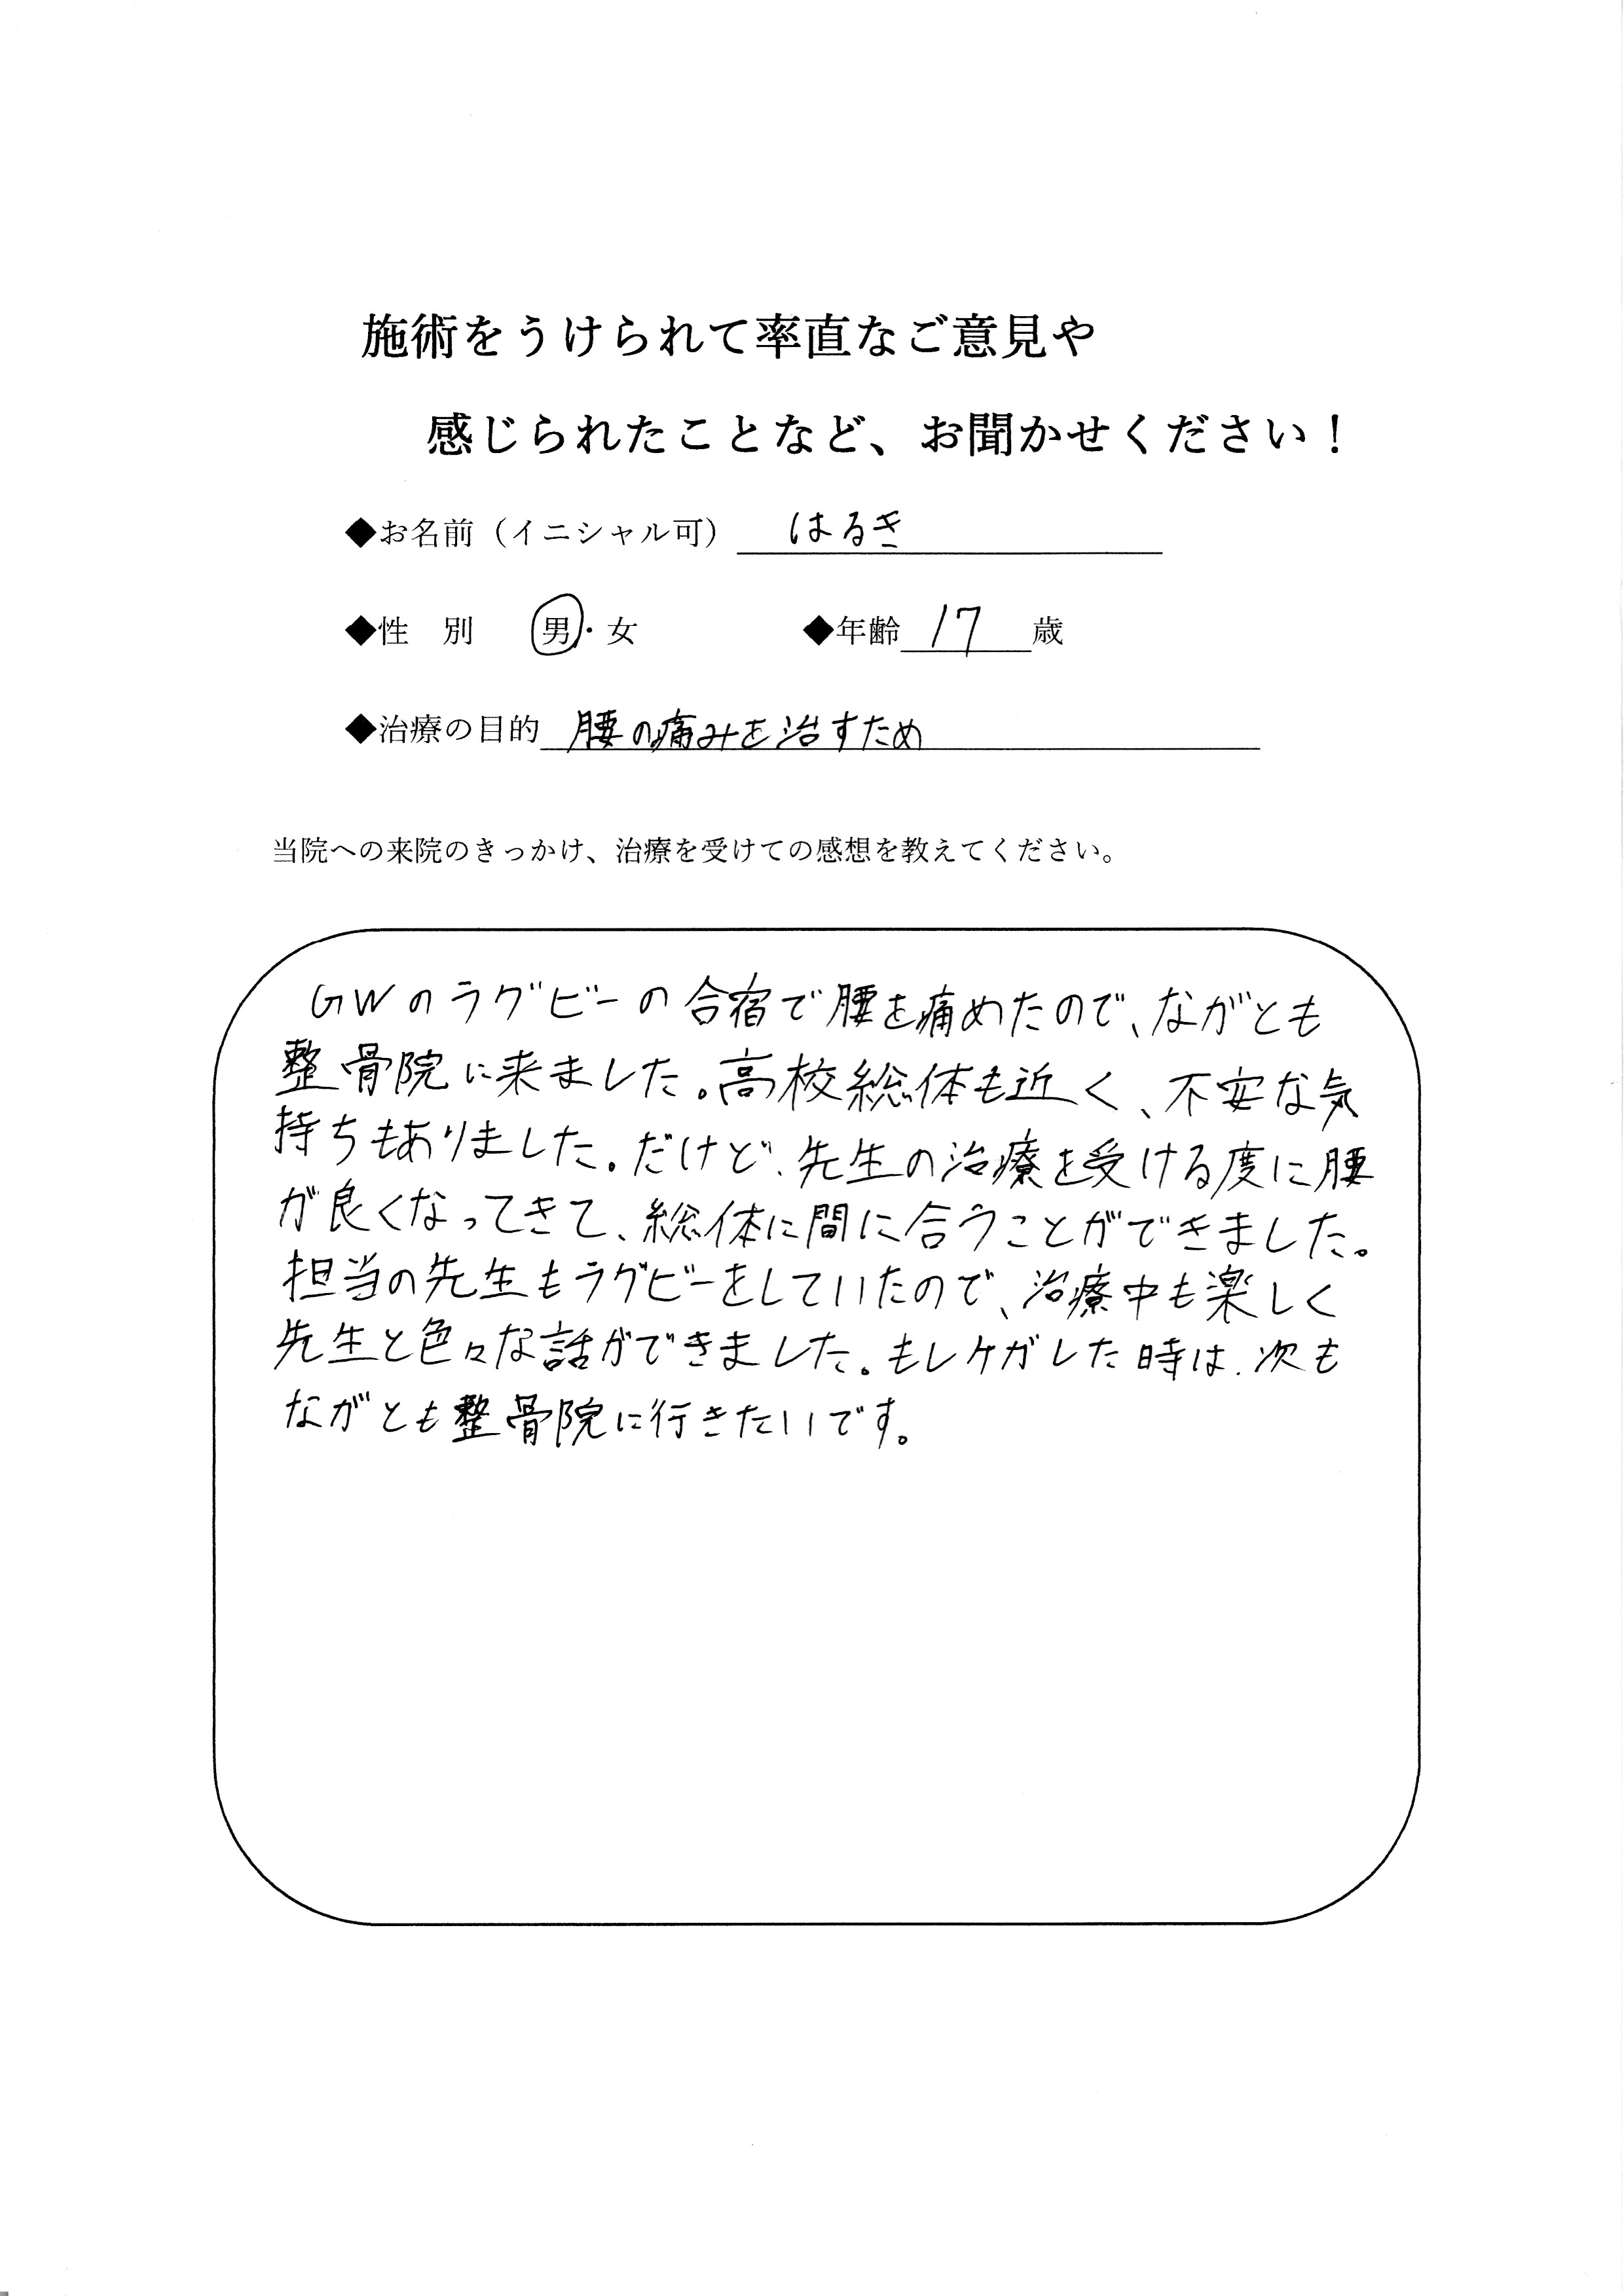 施術をうけられて率直なご意見や
感じられたことなど、お聞かせください！
◆お名前（イニシャル可） はるき
◆性　別　男・女　◆年齢 17 歳
◆治療の目的 腰の痛みを治すため
当院への来院のきっかけ、治療を受けての感想を教えてください。
GWのラグビーの合宿で腰を痛めたので、ながとも
整骨院に来ました。高校総体も近く、不安な気
持ちもありました。だけど、先生の治療を受ける度に腰
が良くなってきて、総体に間に合うことができました。
担当の先生もラグビーをしていたので、治療中も楽しく
先生と色々な話ができました。もしケガした時は、次も
ながとも整骨院に行きたいです。